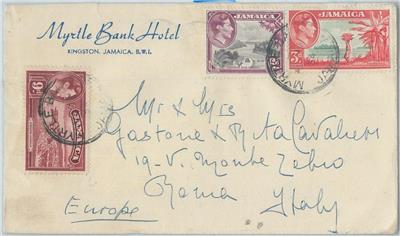 Myrtle Bank Hotel
KINGSTON, JAMAICA, B.W.I.
JAMAICA
JAMAICA
3D
6D
MYRTLE B
MYRTLE
Mr & Mrs
Gastone & Rita Cavalieri
19 - V. Monte Zebio
Roma
Italy
Europe